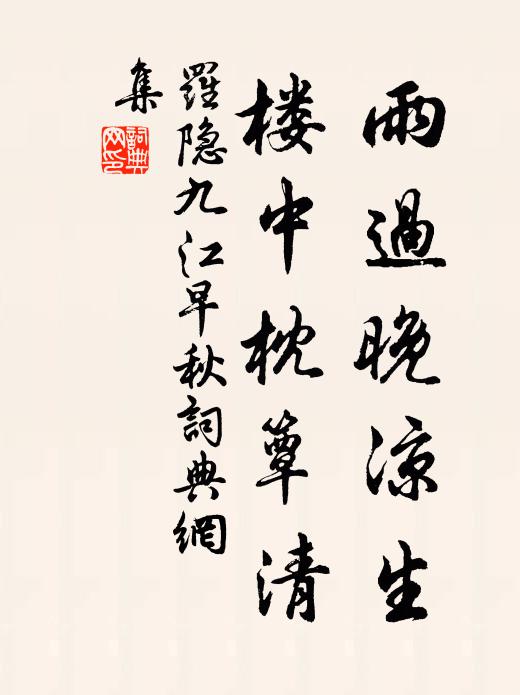 雨過晚凉生
楼中枕簟清
羅隐九江早秋詞典網
集
詞典
网印